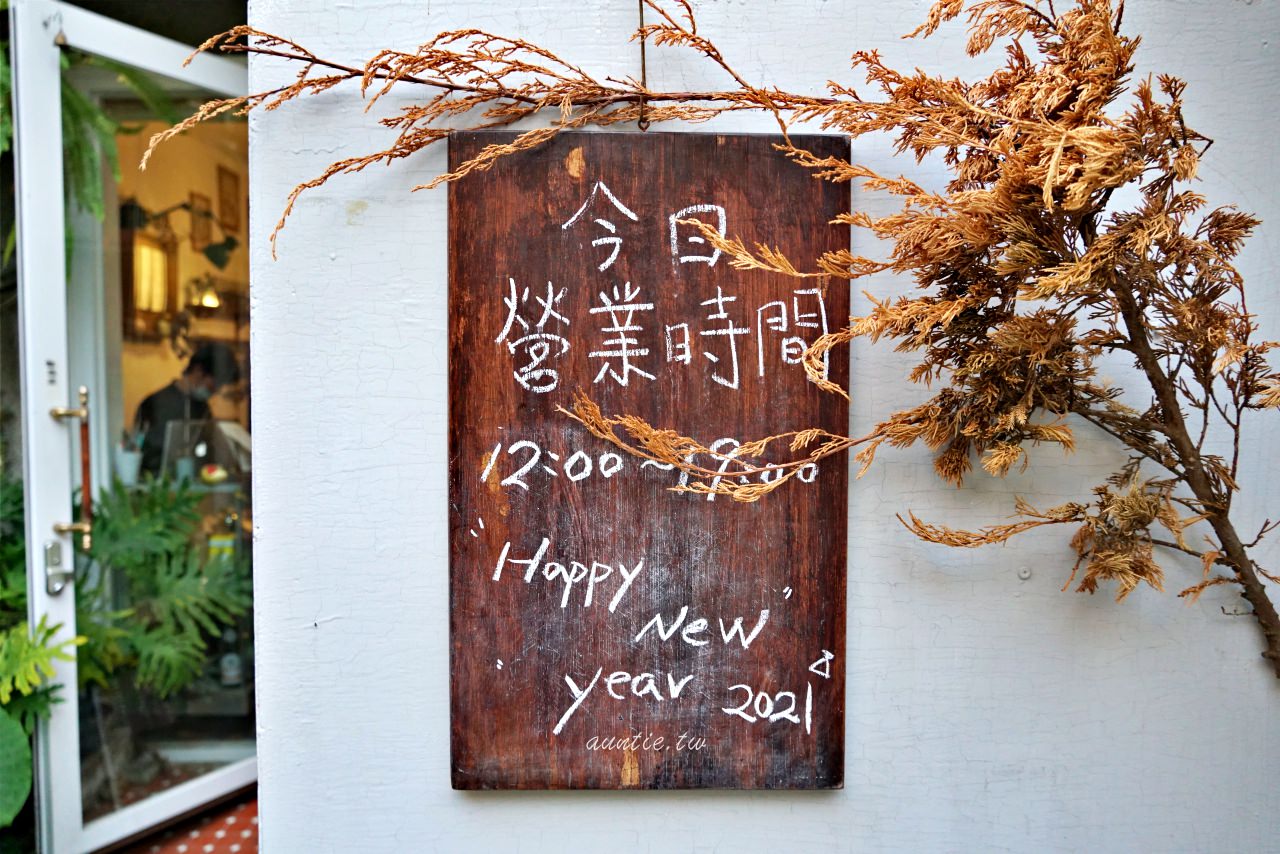 今日
營業時間
12:00~19:00
"Happy
New"
year 2021
auntie.tw